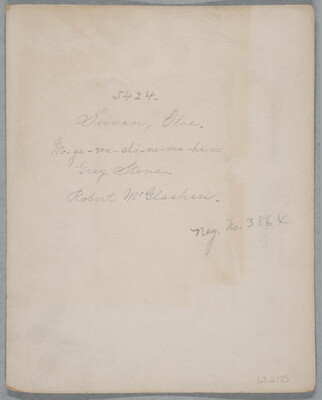 5424.
Siouan, Otoe.
Wa-ge-ma-shi-ne-na-he=
Gray Stone.
Robert McGlashen.
Neg. No. 3864